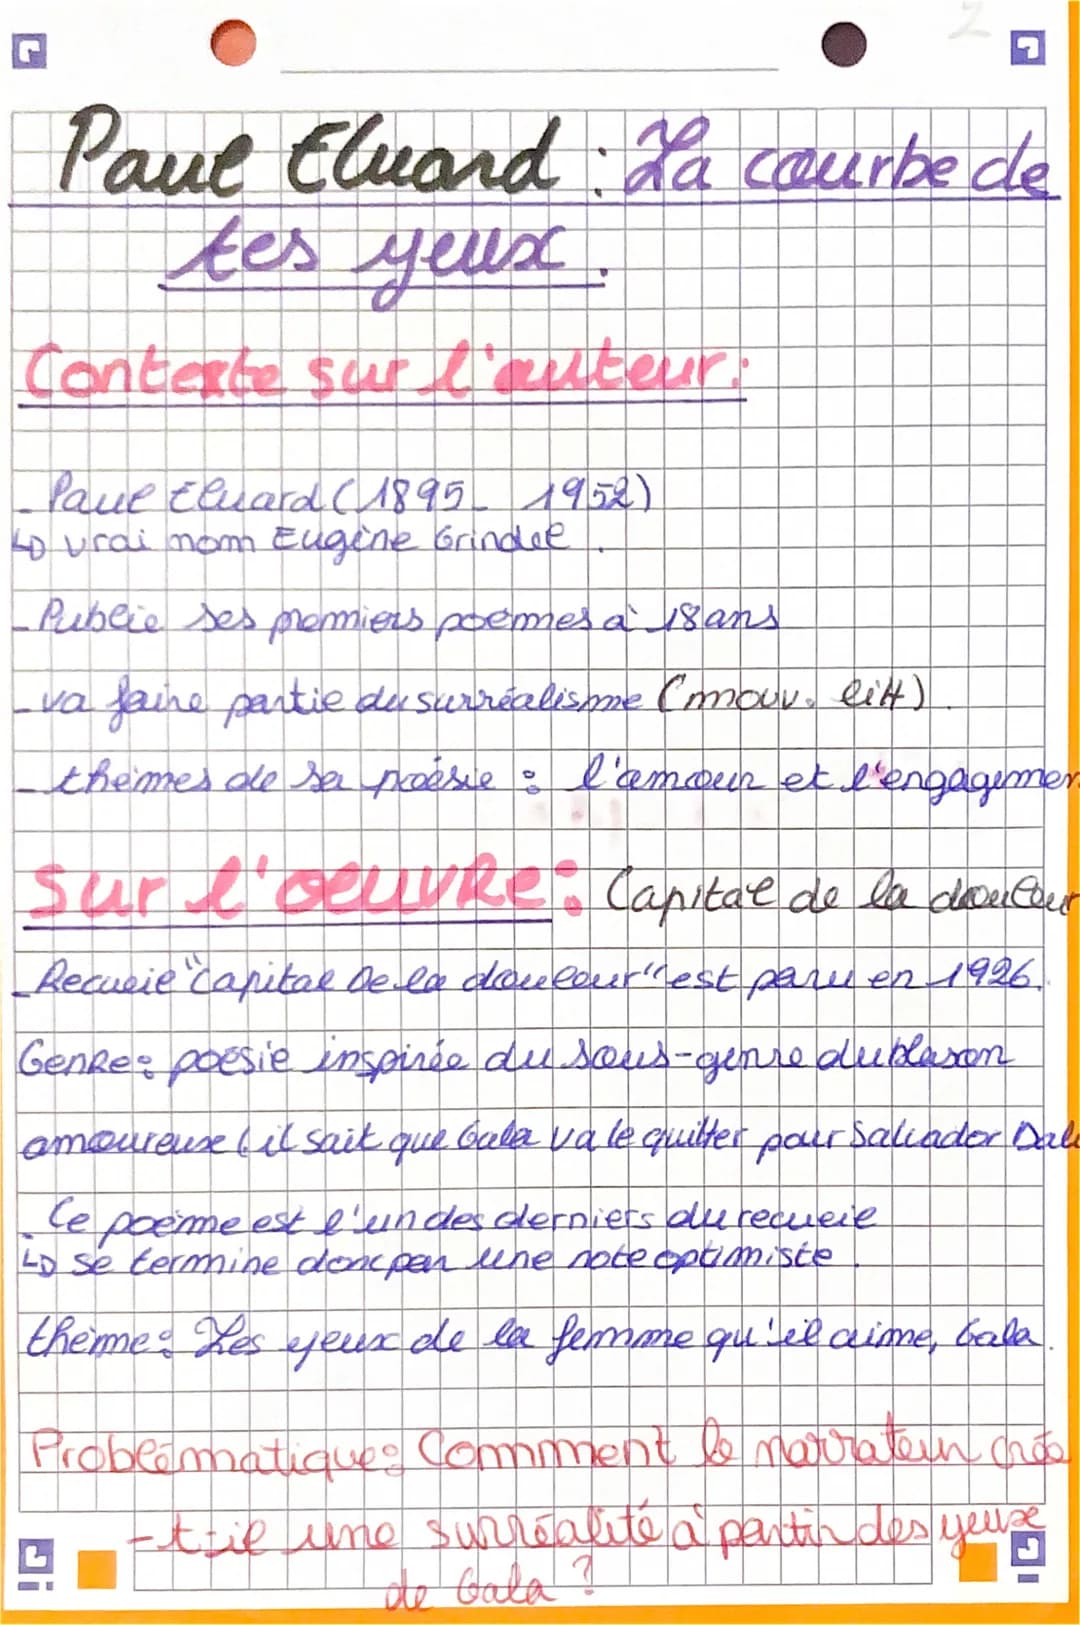 2
Paul Eluard : La courbe de
tes yeux.
Contexte sur l'auteur:
- Paul Eluard (1895 - 1952)
↳ vrai nom Eugène Grindel.
- Publie ses premiers poèmes à 18 ans
- va faire partie du surréalisme (mouv. litt).
- thèmes de sa poésie : l'amour et l'engagemen
sur l'oeuvre: Capital de la douleur
- Recueil "Capital De la douleur" est paru en 1926.
Genre: poésie inspirée du sous-genre du blason
amoureuse (il sait que Gala va le quitter pour Salvador Dal
- Ce poème est l'un des derniers du recueil
↳ se termine donc par une note optimiste.
thème: Les yeux de la femme qu'il aime, Gala.
Problématique: Comment le narrateur crée
-t-il une surréalité à partir des yeux
de Gala ?